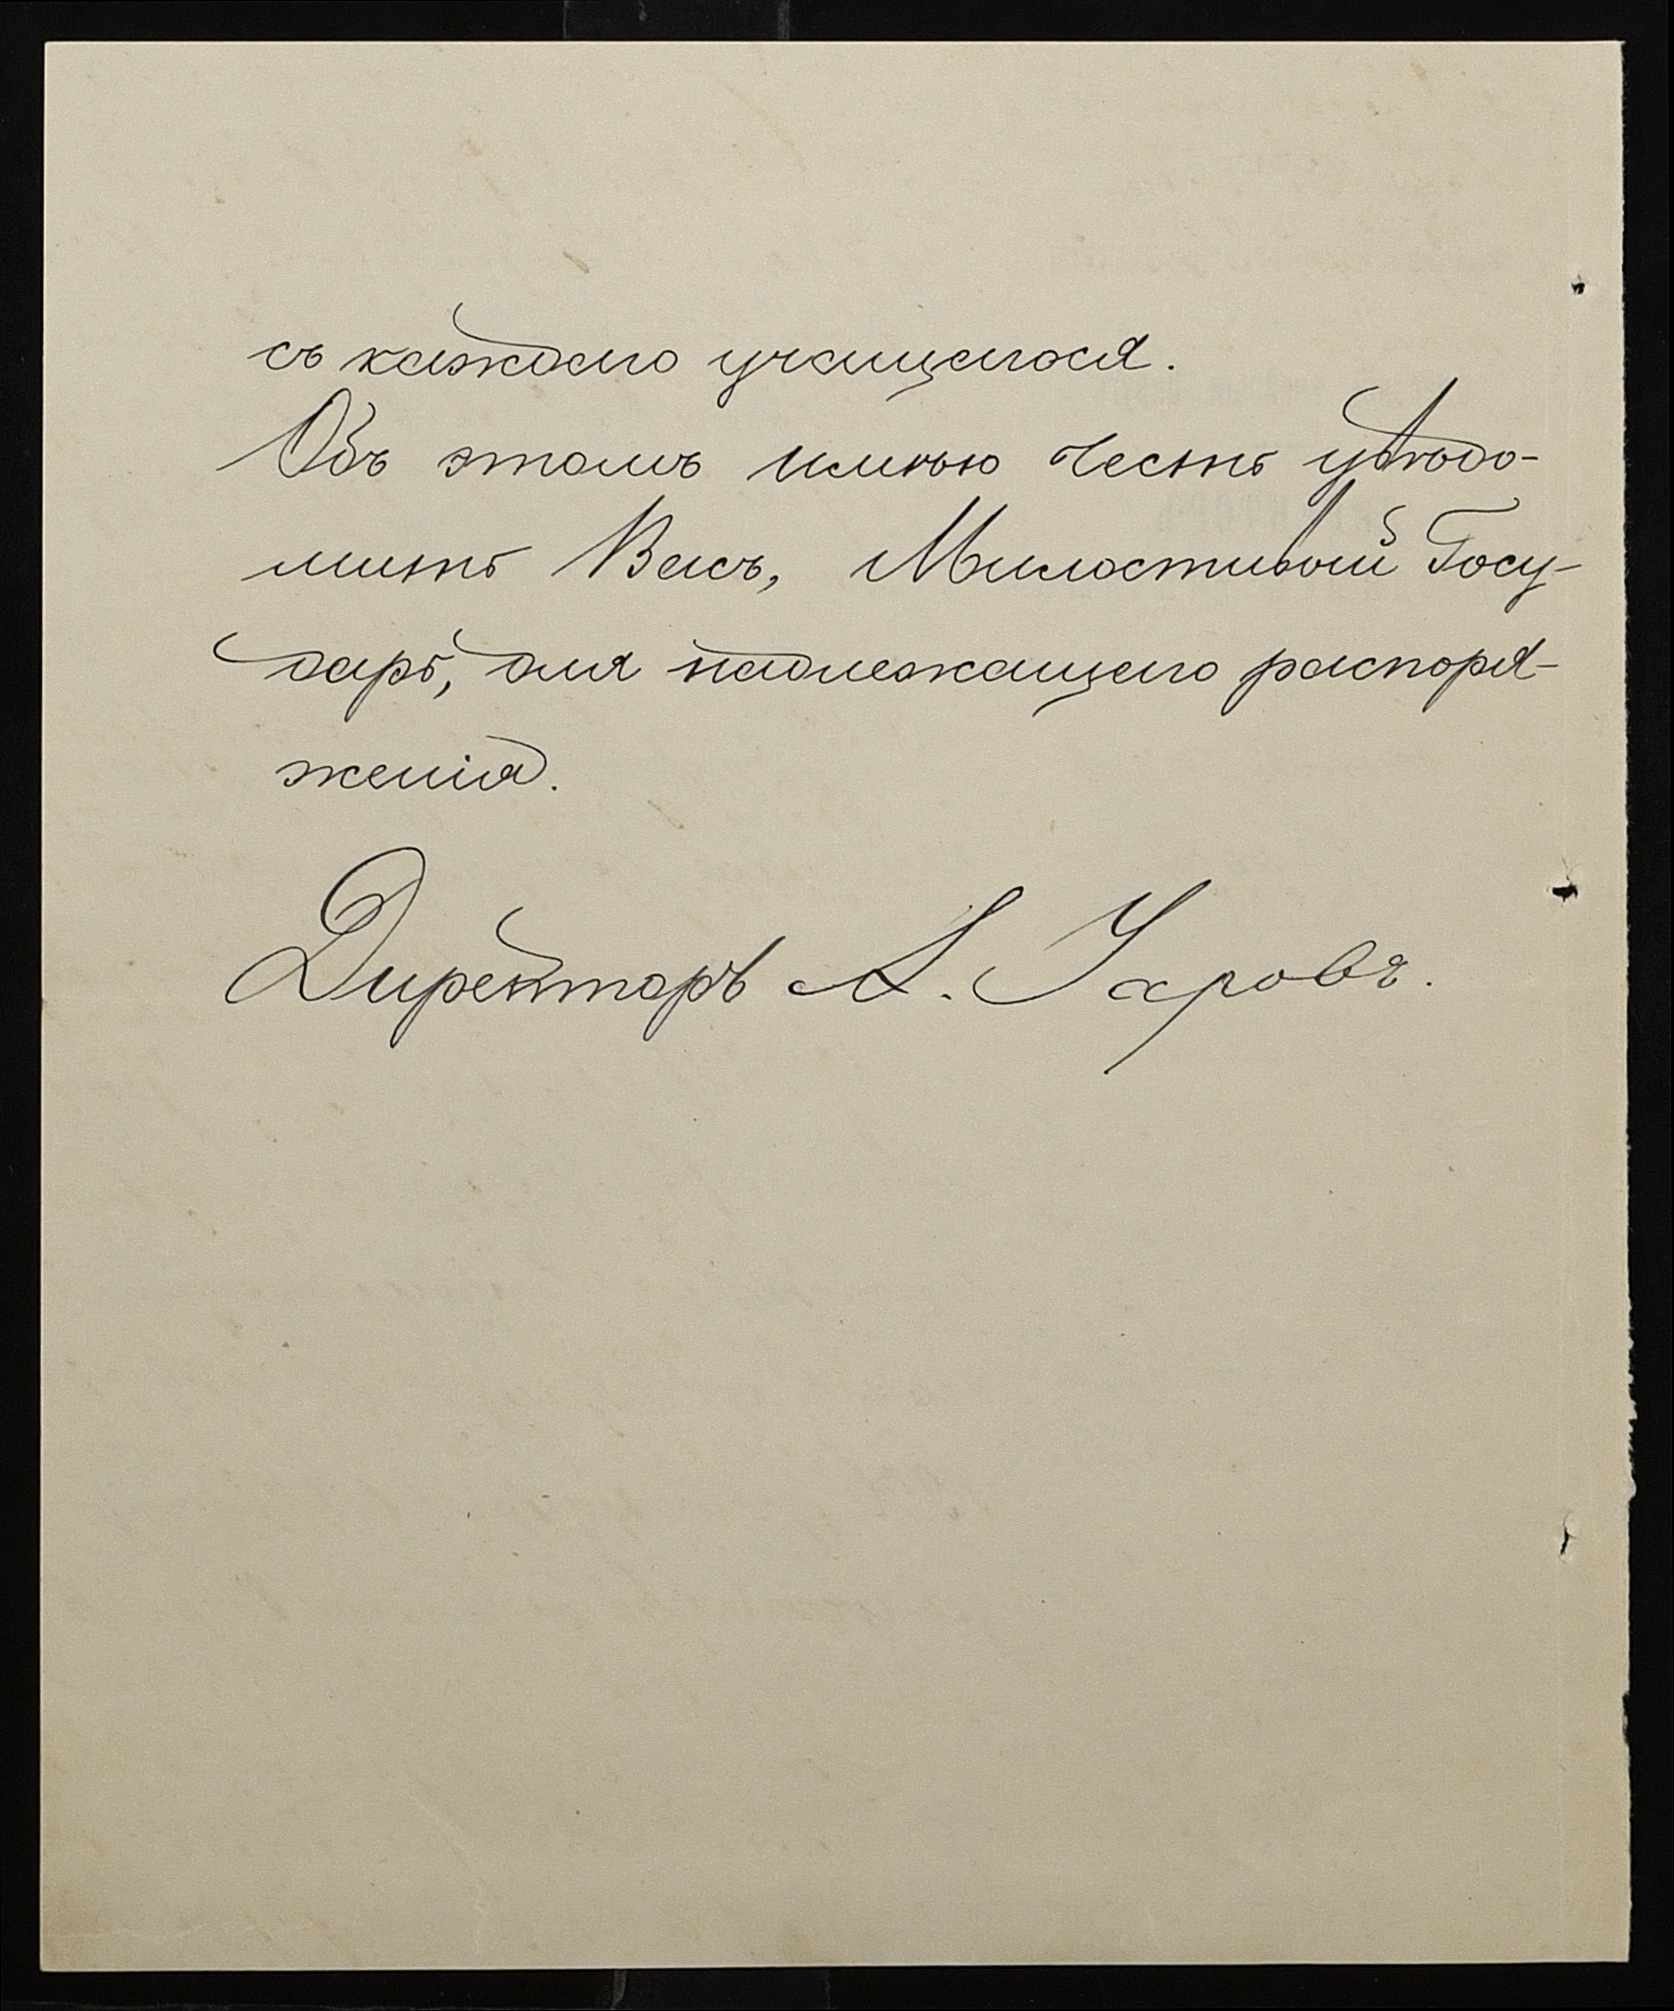 съ каждаго учащагося.
Объ этомъ имѣю честь увѣдо-
мить Васъ, Милостивый Госу-
дарь, для надлежащаго распоря-
женія.
Директоръ А.